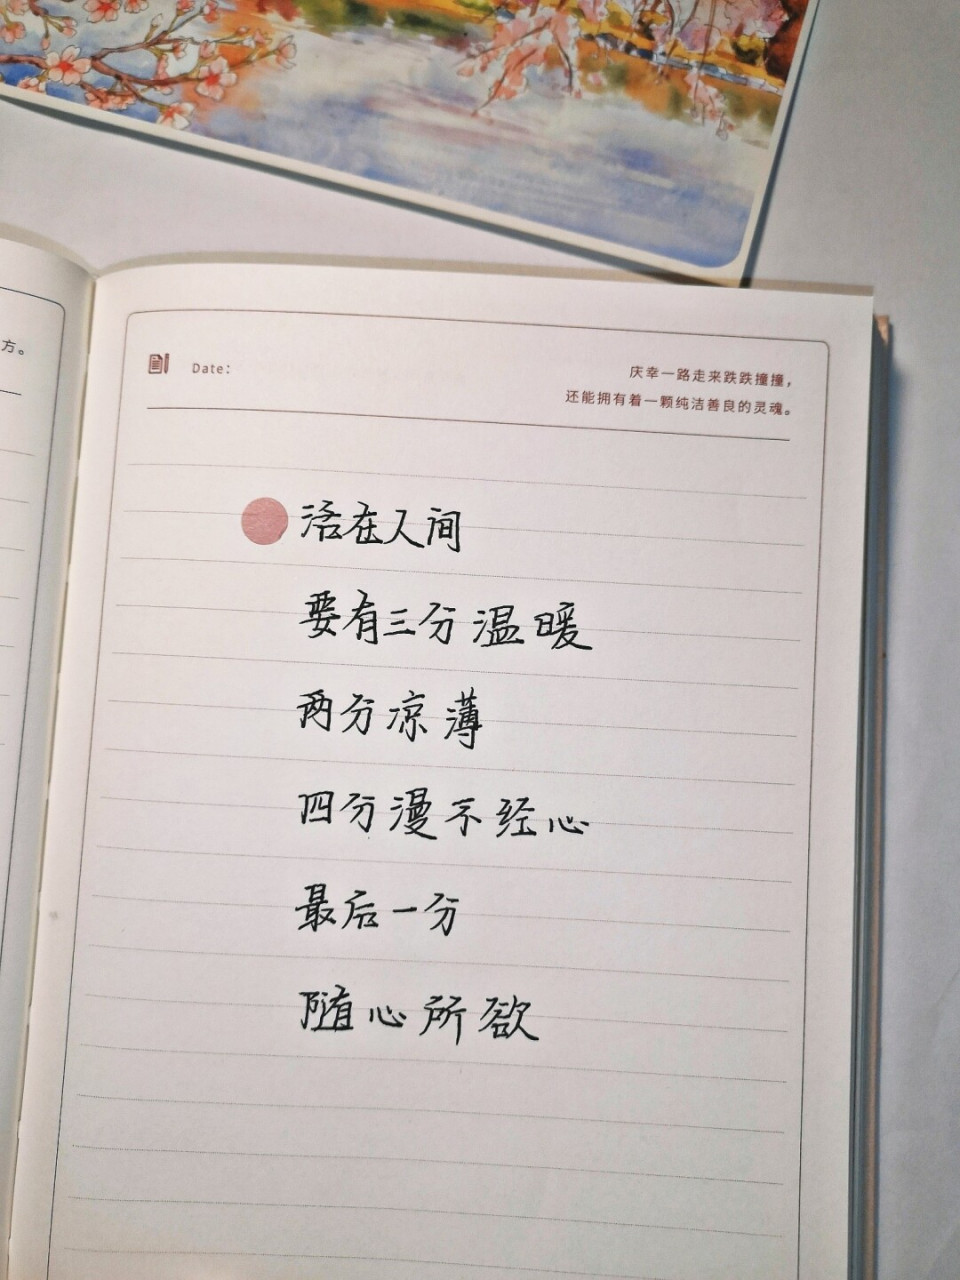 方。
Date:
庆幸一路走来跌跌撞撞，
还能拥有着一颗纯洁善良的灵魂。
活在人间
要有三分温暖
两分凉薄
四分漫不经心
最后一分
随心所欲